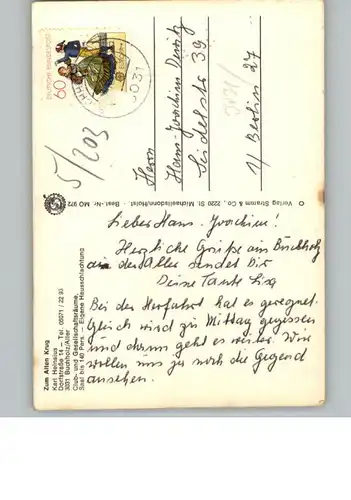 Zum Alten Krug
Karl Heinsius
Dorfstraße 14 – Tel. 05071 / 22 93
3031 Buchholz/Aller
Club- und Gesellschafteräume.
Saal bis 140 Pers. – Eigene Hausschlachtung
Verlag Stramm & Co., 2220 St. Michaelisdonn/Holst. · Best.-Nr. MO 972
DEUTSCHE BUNDESPOST
60
3031
5/203
Herrn
Hans-Joachim
Seidelstr 39
1/ Berlin 27
Lieber Hans-Joachim!
Herzliche Grüße aus Buchholz
an der Aller sendet Dir
Deine Tante Lisa
Bei der Herfahrt hat es geregnet.
Gleich wird zu Mittag gegessen
und dann geht es weiter. Wir
wollen uns ja noch die Gegend
ansehen.